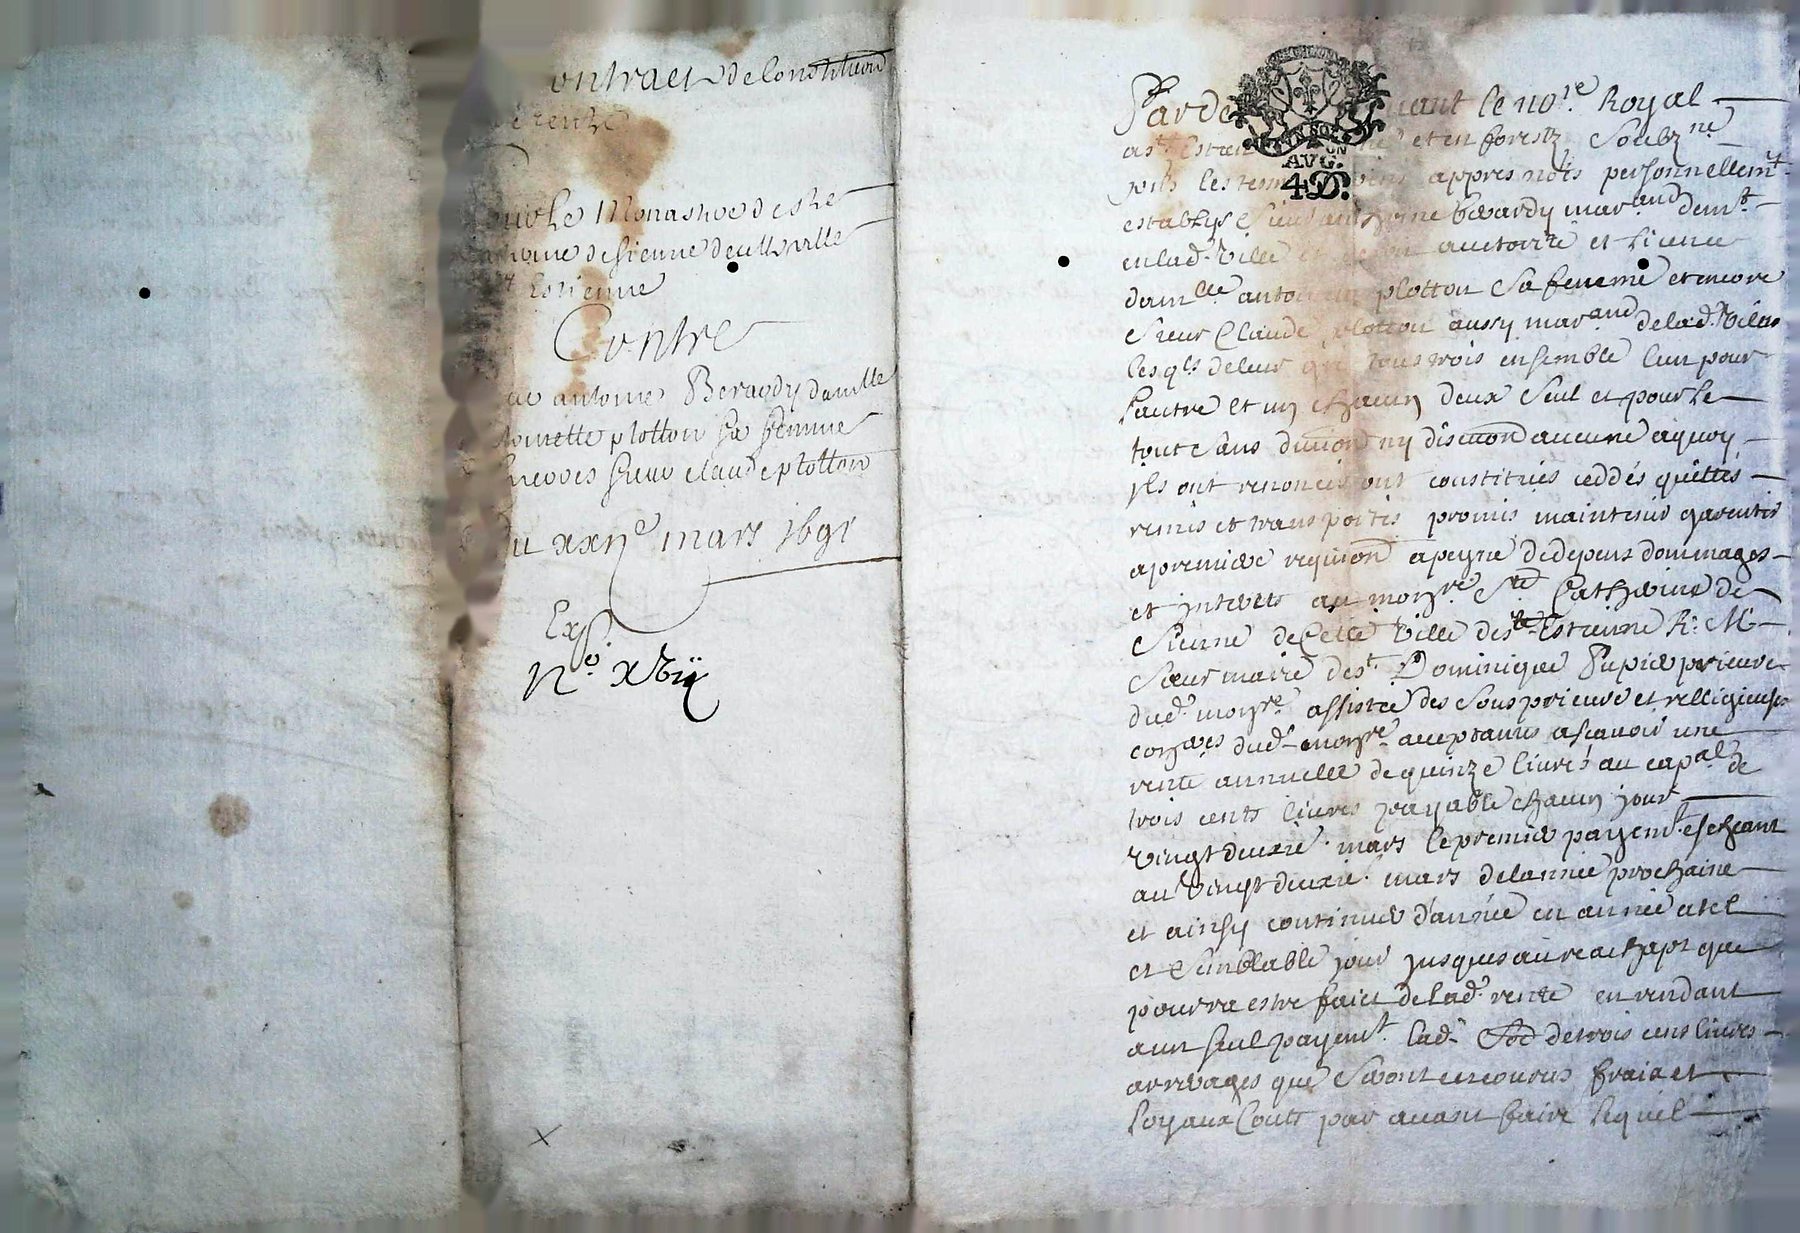 Contract de Constitution
de rente
Pour Le Monastere de Ste
Catherine de Sienne de cette ville
St Estienne
Contre
antoine Beraudy damlle
toinette plotton sa femme
encores sieur claude plotton
Du xxije mars 1691
Exp
No. xvij
Pardevant le nore. Royal
a st. Estienne et en forestz Soubzne
pnts les tesmoins appres nots personnellemt.
establys Sieur anthoine beraudy marand demt.
en lad. Ville et de son auctorité et licence
damlle antoinette plotton Sa femme et encore
Sieur Claude plotton aussy marand de lad. Ville
lesqls de leur gré tous trois ensemble l'un pour
l'autre et un chacun deux Seul et pour le
tout Sans division ny discution aucune a quoy
ils ont renoncé ont constitués ceddés quittés
remis et transportés promis maintenir garentir
a premiere requion a peyne de depens dommages
et interets au monre Ste Catherine de
Sienne de Cette Ville de St Estienne R: M
Sœur marie de st. Dominique Pupier prieure
dud. monre. assistée des Sousprieure et relligieuses
dud. monre. acceptantes ascavoir une
rente annuelle de quinze livres au capal de
trois cents livres payable chacun jour
vingt deuxie. mars le premier payemt. escheant
au vingt deuxie. mars de lannée prochaine
et ainsy continuer d'année en année a tel
et Semblable jour jusques au reachapt que
pourra estre faict de lad. rente en rendant
a un seul payemt. lad. Sō de trois cens livres
arrerages que Seront encourus fraix et
loyaux Couts par avant faire lequel
AVG.
4 D.